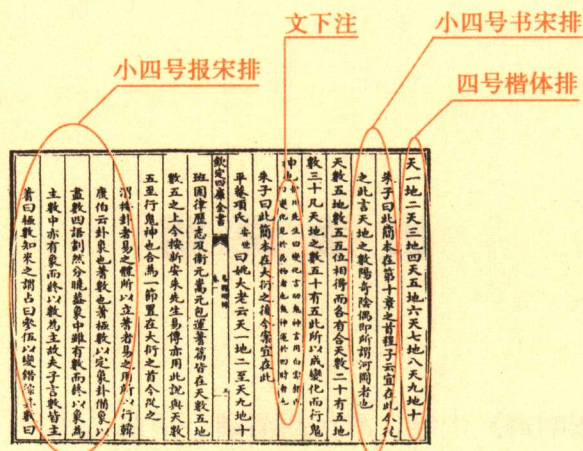 文下注
小四号书宋排
小四号报宋排
四号楷体排
天一地二天三地四天五地六天七地八天九地十
朱子曰此簡本在第十章之首程子云宜在此今從
之此言天地之數陽奇陰偶即所謂河圖者也
天數五地數五五位相得而各有合天數二十有五地
數三十凡天地之數五十有五此所以成變化而行鬼
神也
朱子曰此簡本在大衍之後今案宜在此
平菴項氏安世曰姚大老云天一地二至天九地十
欽定四庫全書
班固律歷志及衛元嵩元包運蓍篇皆在天數五地
數五之上今按新安朱先生易傳亦用此說與天數
五至行鬼神也合爲一節置在大衍之首今從之
庚伯云卦象也蓍數也蓍極數以定象卦備象以
盡數四語劃然分曉蓋象中雖有數而終以象爲
主數中亦有象而終以數為主故夫子言數皆主
蓍曰極數知來之謂占曰參伍以變錯綜其數曰